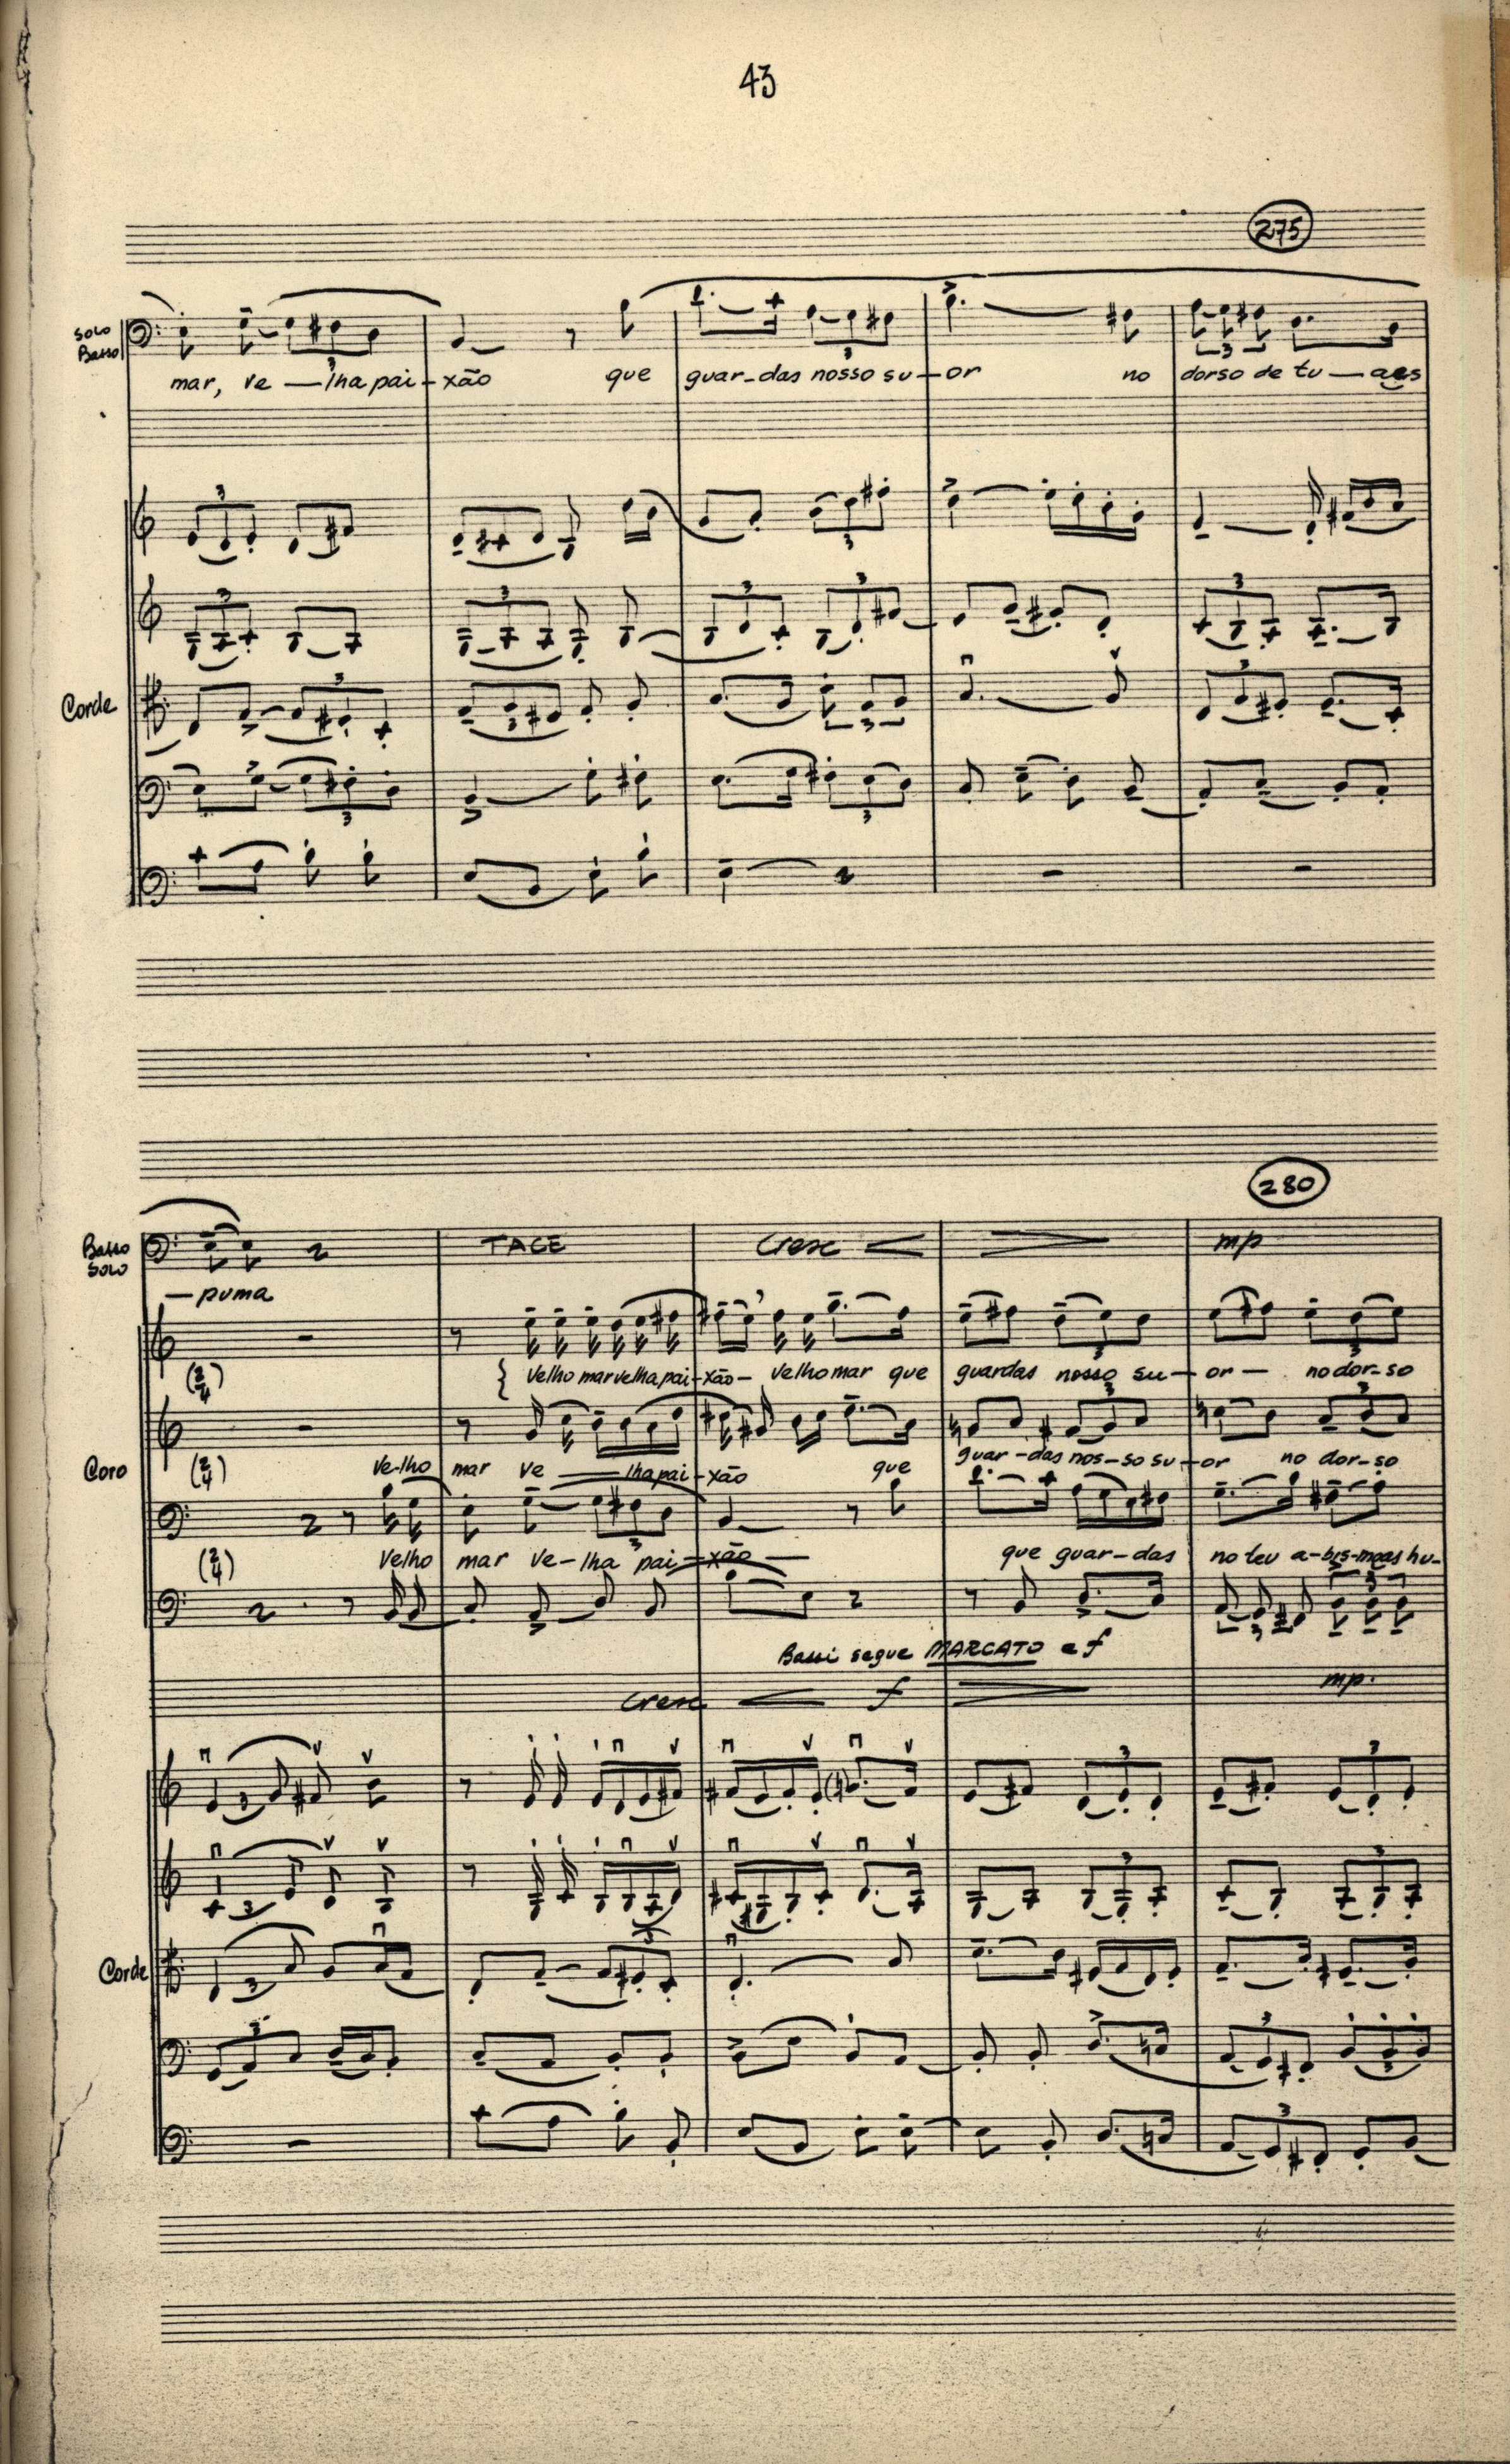 43
275
Solo
Basso
mar, ve — lha pai - xão que guar - das nosso su - or no dorso de tu — a es
Corde
280
Basso
Solo
TACE Cresc mp
— puma
(2/4)
Velho mar velha pai - xão - velho mar que guardas nosso su - or — no dor - so
Coro
(2/4)
Ve - lho mar ve — lha pai - xão que guar - das nos - so su - or no dor - so
(2/4)
Velho mar ve - lha pai - xão — que guar - das no teu a - bis - mo as hu -
Bassi segue MARCATO e f
Cresc f mp.
Corde